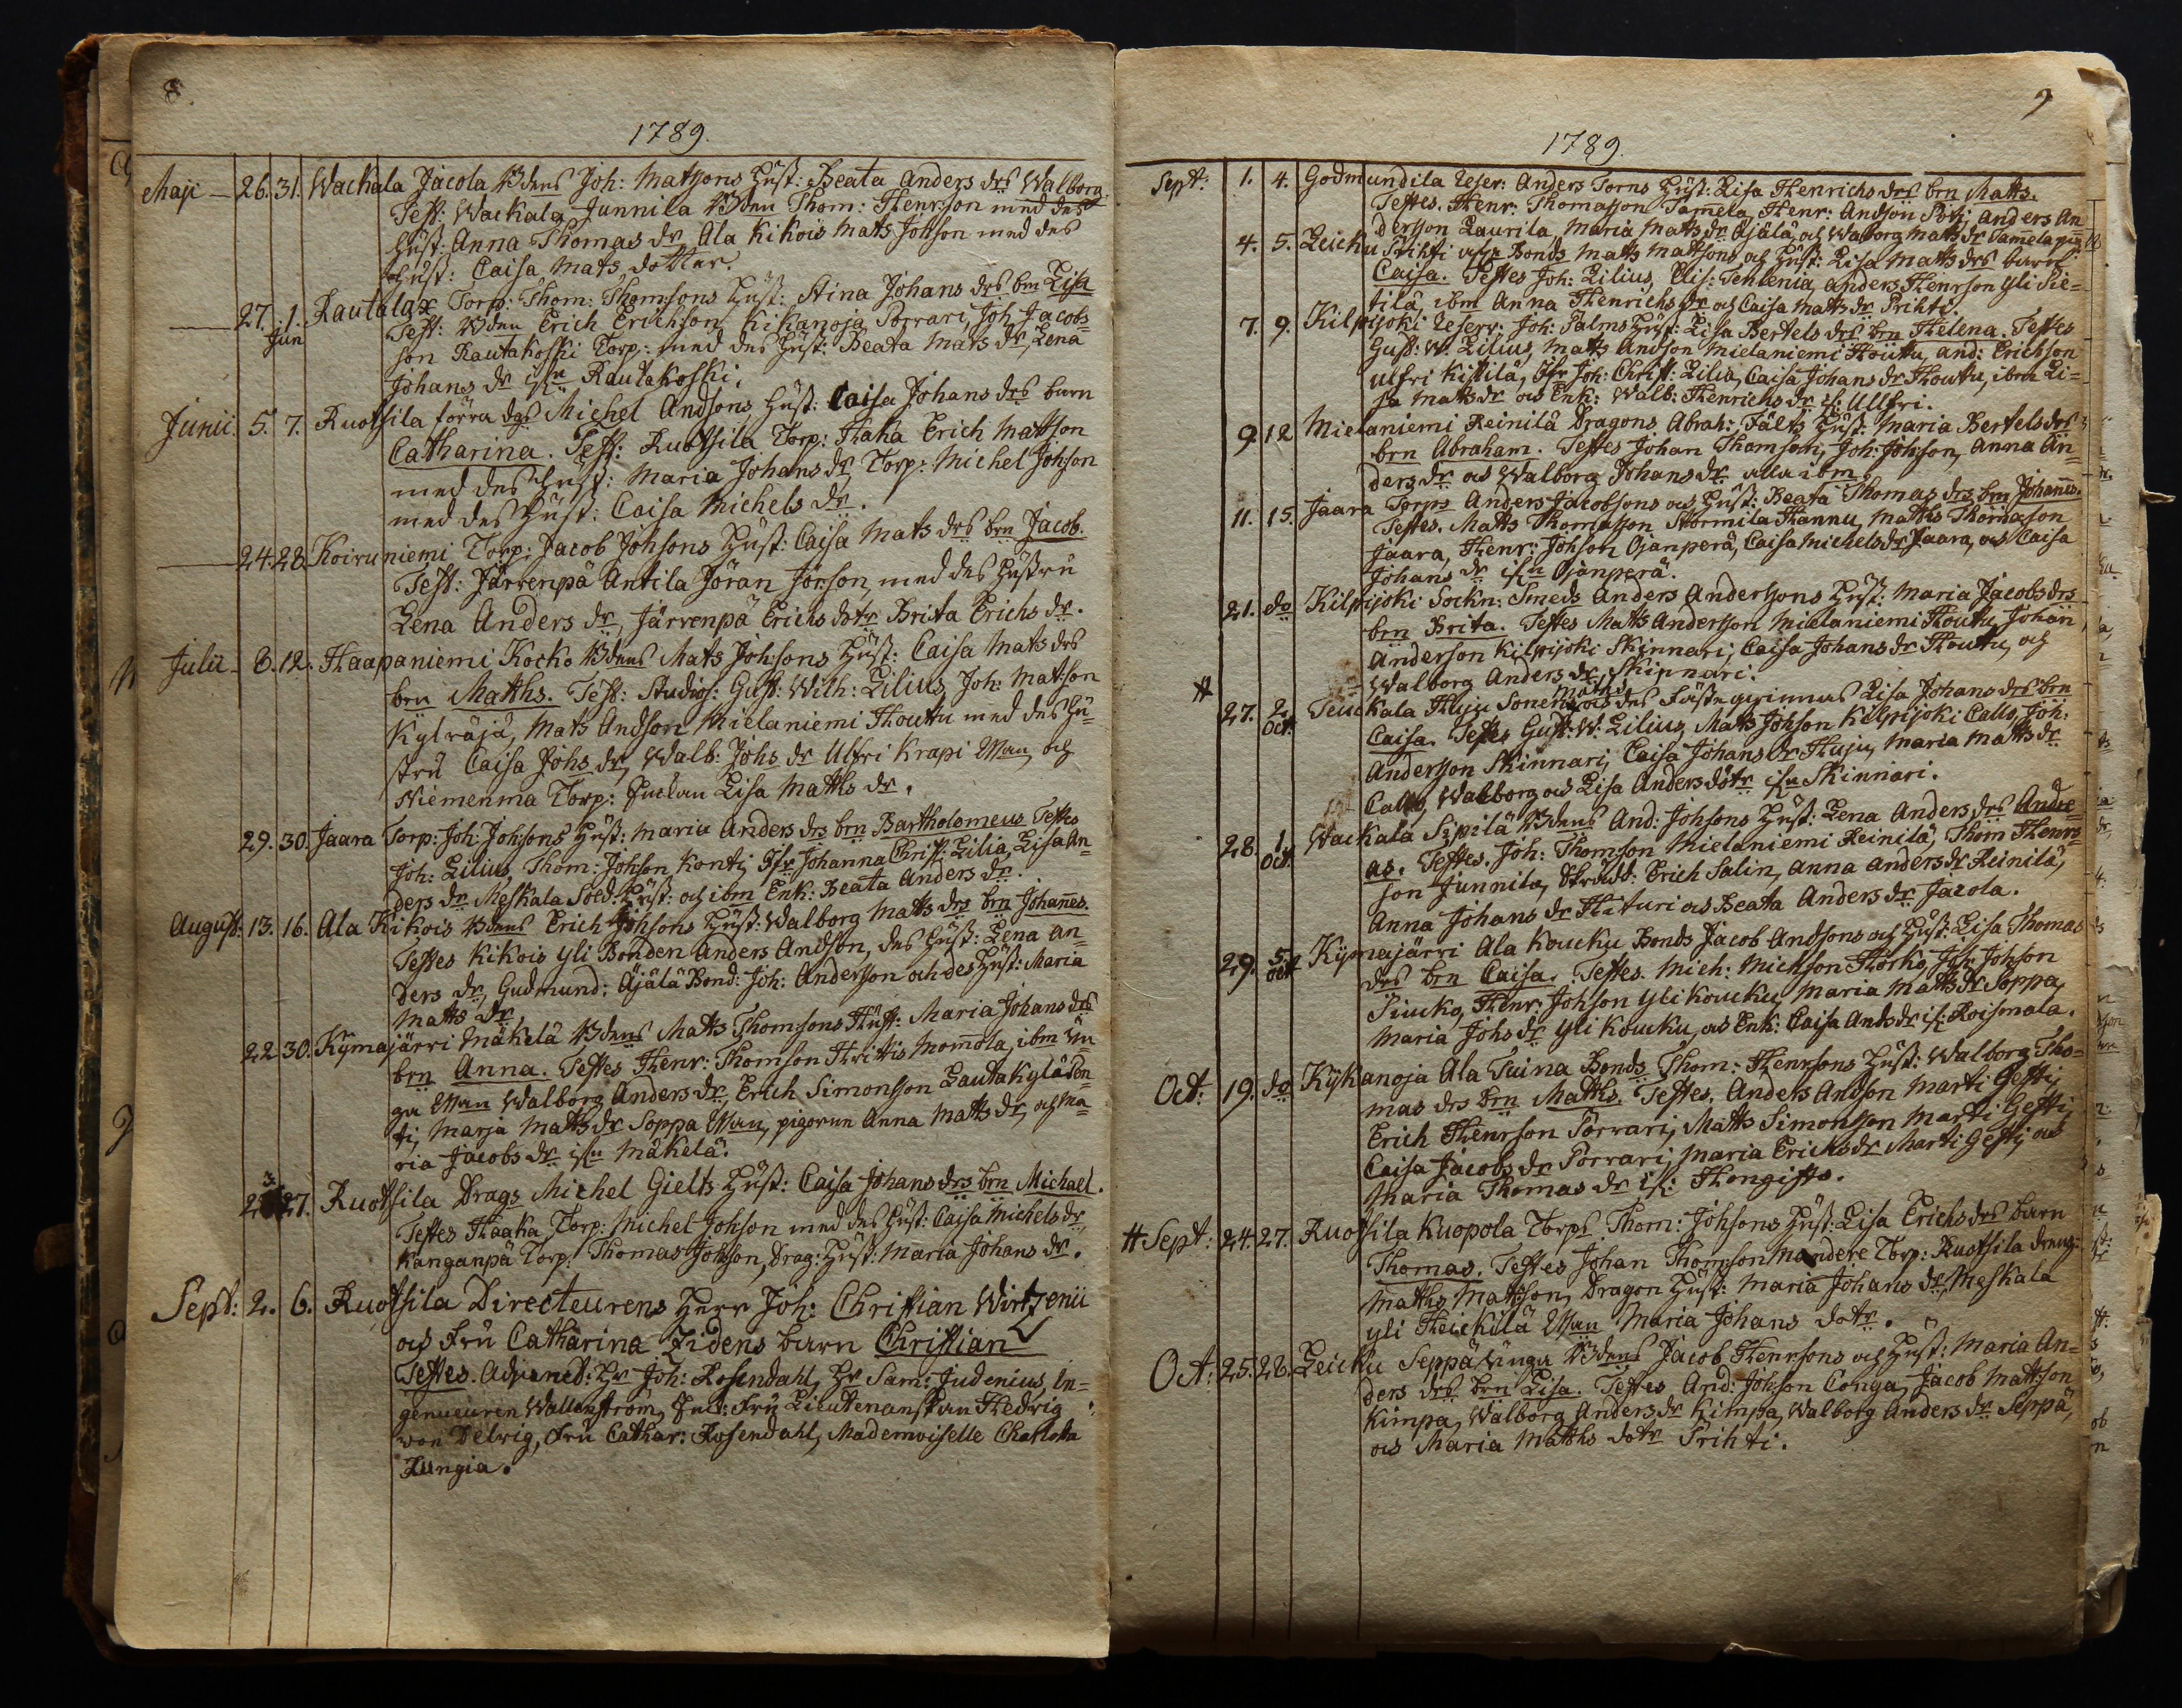 8.
1789.
Maji — 26. 31. Wackala Jacola Bdens Joh: Matsons Hust: Beata Anders drs Walborg.
Test: Wackala Junnila Bden Thom: Henrson med des
Hust: Anna Thomas dr. Ala Kikois Mats Johson med des
Hust: Caisa Mats dotter.
— 27. 1. Jun Rautalax Torp: Thom: Thomsons Hust: Stina Johans drs brn Lisa
Test: Bden Erich Erichson Kikanoja Porrari, Joh Jacob-
son Rautakoski Torp: med des Hust: Beata Mats dr, Lena
Johans dr Rautakoski.
Junii. 5. 7. Ruotsila förra dgs Michel Andsons Hust: Caisa Johans drs barn
Catharina. Test: Ruotsila Torp: Haka Erich Mattson
med des Hust: Maria Johans dr, Torp: Michel Johson
med des Hust: Caisa Michels dr.
— 24. 28. Koiruniemi Torp: Jacob Johsons Hust: Caisa Mats drs brn Jacob.
Test: Järrenpä Antila Jöran Jörson, med des Hustru
Lena Anders dr, Järrenpä Erichs dotr Brita Erichs dr.
Julii — 8. 12. Haapaniemi Kocko Bdens Mats Johsons Hust: Caisa Mats drs
brn Matths. Test: Studios: Gust: Wilh: Lilius, Joh: Matson
Kylräjä, Mats Andson Mielaniemi Houttu med des Hu-
stru Caisa Johs dr, Walb: Johs dr Ulfri Krapi och
Niemenma Torp: Lisa Matths dr.
29. 30. Jaara Torp: Joh: Johsons Hust: Maria Anders drs brn Bartholomeus Testes
Joh: Lilius, Thom: Johson Konti, Jfr Johanna Christ: Lilia, Lisa An-
ders dr Meskala Sold: Hust: och ibm Enk: Beata Anders dr.
August: 13. 16. Ala Kikois Bdens Erich Johsons Hust: Walborg Matts drs brn Johannes.
Testes Kikois Yli Bonden Anders Andson, des Hust: Lena An-
ders dr, Gudmund: Äjälä Bond: Joh: Anderson och des Hust: Maria
Matts dr.
22. 30. Kymajärri Mäkelä Bdens Matts Thomsons Hust: Maria Johans drs
brn Anna. Testes Henr: Thomson Hritis Mommola, ibm Un-
ga Walborg Anders dr, Erich Simonsson Lautakylä Pen-
ti, Marja Matts dr Soppa, pigorne Anna Matts dr, och Ma-
ria Jacobs dr Mäkelä.
23. 27. Ruotsila Drags Michel Gielts Hust: Caisa Johans drs brn Michael.
Testes Haaka Torp: Michel Johson med des Hust: Caisa Michels dr
Kanganpä Torp: Thomas Johson, Drag: Hust: Maria Johans dr.
Sept: 2. 6. Ruotsila Directeurens Herr Joh: Christian Wirtzenii
och Fru Catharina Zidens barn Christian
Testes. Adjunct: Hr Joh: Rosendahl, Hr Sam: Judenius, In-
genieuren Wallenström, Fru Lieutenanskan Hedvig
von Delvig, Fru Cathar: Rosendahl, Mademoiselle Charlotta
Zungia.
9
1789.
Sept: 1. 4. Godmundila Reser: Anders Torns Hust: Lisa Henrichs drs brn Matts.
Testes. Henr: Thomasson Tammela, Henr: Andson Pori, Anders An-
dersson Laurila, Maria Matts dr Äjälä och Walborg Matts dr Tammela pig:
4. 5. Leicku Prihti Bonds Matts Mattsons och Hust: Lisa Matts drs barn
Caisa. Testes Joh: Lilius, Elis: Tehlenia, Anders Henrson Yli Pie-
tilä, ibm Anna Henrichs dr och Caisa Matts dr Prihti.
7. 9. Kilpijoki Reserv: Joh: Palms Hust: Lisa Bertels drs brn Helena. Testes
Gust: W. Lilius, Mats Andson Mielaniemi Houttu, And: Erichson
Ulfri Kistilä, Jfr Joh: Christ: Lilia, Caisa Johans dr Houttu, ibm Li-
sa Mats dr och Enk: Walb: Henrichs dr Ullfri.
9. 12 Mielaniemi Reinilä Dragons Abrah: Fälts Hust: Maria Bertels drs
brn Abraham. Testes Johan Thomson, Joh: Johson, Anna An-
ders dr och Walborg Johans dr alla ibm.
11. 15. Jaara Torps Anders Jacobsons och Hust: Beata Thomas drs brn Johannes.
Testes. Matts Thomasson Stormila Hannu, Matths Thomason
Jaara, Henr: Johson Ojanperä, Caisa Michels dr Jaara, och Caisa
Johans dr Ojanperä.
21. do Kilpijoki Sockn: Smeds Anders Anderssons Hust: Maria Jacobs drs
brn Brita. Testes Matts Andersson Mielaniemi Houttu, Johan
Anderson Kilpijoki Skinnari, Caisa Johans dr Houttu, och
Walborg Anders dr, Skinnari.
#
27. 2. Oct. Teuckala Huju Sonens Matts och des Fästeqvinnas Lisa Johans drs brn
Caisa. Testes Gust: W: Lilius, Mats Johson Kilpijoki Callo, Joh:
Andersson Skinnari, Caisa Johans dr Huju, Maria Matts dr
Callo, Walborg och Lisa Anders dotr Skinnari.
28. 1 Oct. Wackala Sipilä Bdens And: Johsons Hust: Lena Anders drs Andre-
as. Testes. Joh: Thomson Mielaniemi Reinilä, Thom Henr-
son Junnila, Skrädd: Erich Salin, Anna Anders dr Reinilä,
Anna Johans dr Hituri och Beata Anders dr Jacola.
29. 5 Oct Kymajärri Ala Koucku Bonds Jacob Andsons och Hust: Lisa Thomas
drs brn Caisa. Testes. Mich: Michson Horko, Joh: Johson
Siucko, Henr: Johson Yli Koucku, Maria Matts dr Soppa,
Maria Johs dr Yli Koucku, och Enk: Caisa Ands dr Roismala.
Oct: 19. do Kykanoja Ala Tuina Bonds Thom: Henrsons Hust: Walborg Tho-
mas drs brn Matths. Testes. Anders Andson Marti Gesti,
Erich Henrson Porrari, Matts Simonson Marti Gesti,
Caisa Jacobs dr Porrari, Maria Erichs dr Marti Gesti, och
Maria Thomas dr Hongisto.
# Sept: 24. 27. Ruotsila Kuopola Torps Thom: Johsons Hust: Lisa Erichs drs barn
Thomas. Testes Johan Thomson Mandere Torp: Ruotsila dreng:
Matths Matsson, Dragon Hust: Maria Johans dr, Meskala
Yli Heickilä Maria Johans dotr.
Oct: 25. 28. Leicku Seppä Unga Bdens Jacob Henrsons och Hust: Maria An-
ders drs brn Lisa. Testes And: Johson Conga, Jacob Mattson
Kimpa, Walborg Anders dr Kimpa, Walborg Anders dr Seppä,
och Maria Matths dotr Prihti.